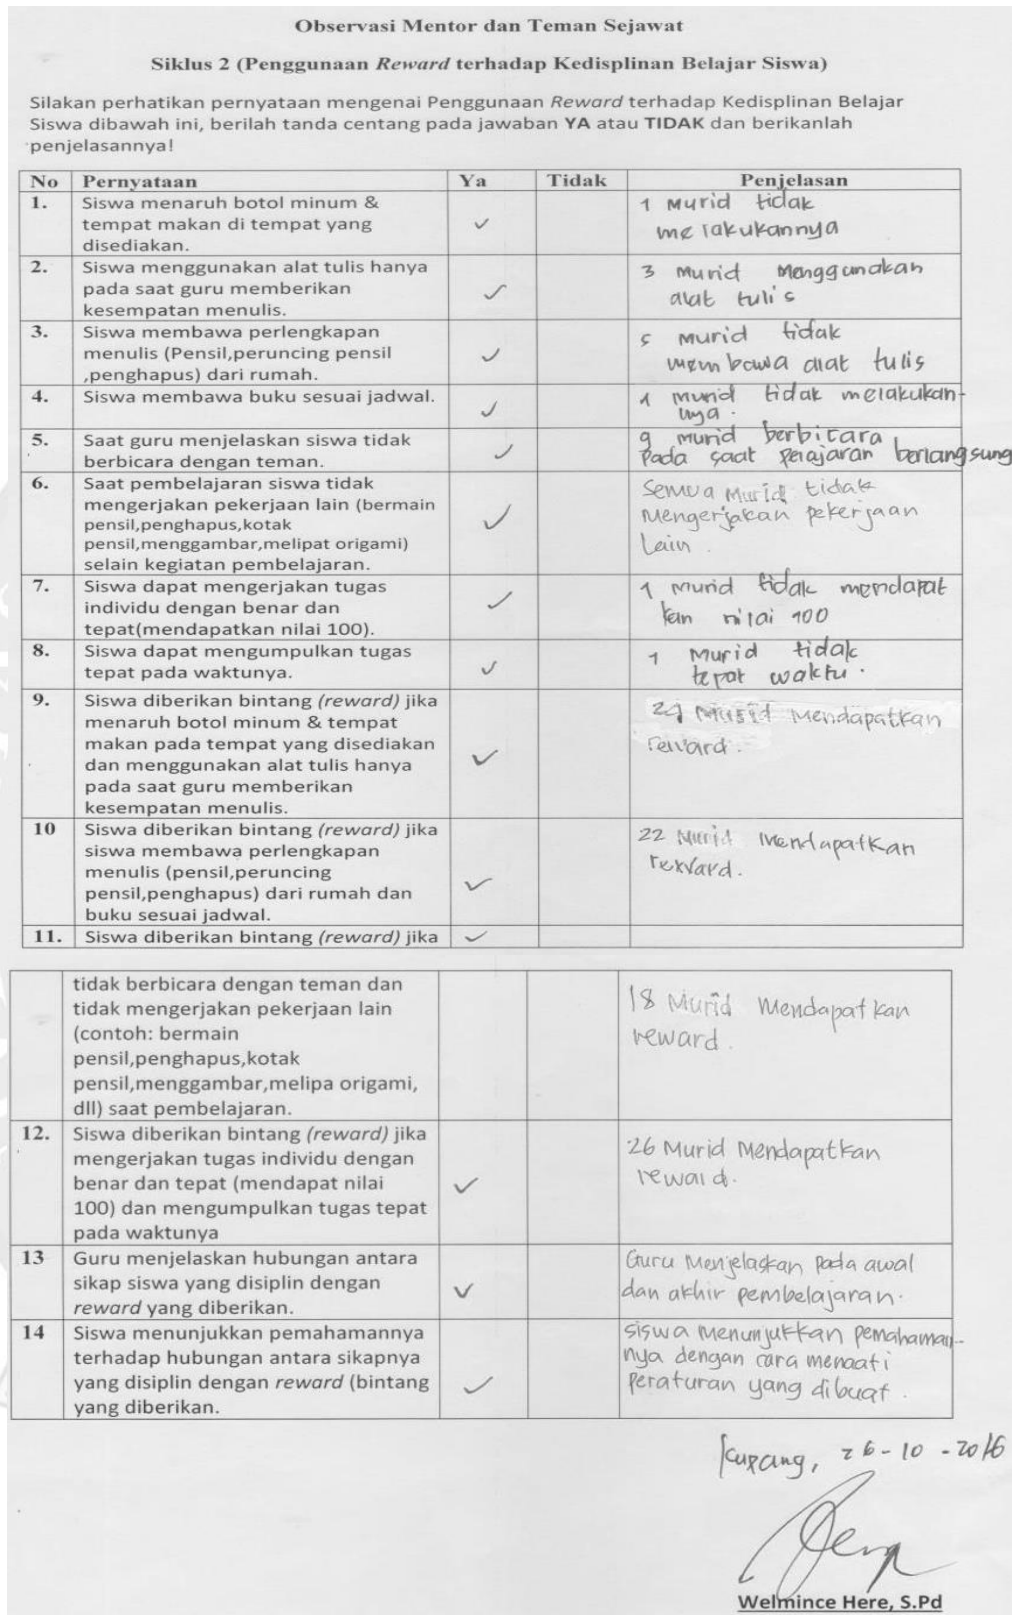 Observasi Mentor dan Teman Sejawat
Siklus 2 (Penggunaan Reward terhadap Kedisplinan Belajar Siswa)
Silakan perhatikan pernyataan mengenai Penggunaan Reward terhadap Kedisplinan Belajar
Siswa dibawah ini, berilah tanda centang pada jawaban YA atau TIDAK dan berikanlah
penjelasannya!
No Pernyataan Ya Tidak Penjelasan
1. Siswa menaruh botol minum &
tempat makan di tempat yang
disediakan.
✓
1 Murid tidak
melakukannya
2. Siswa menggunakan alat tulis hanya
pada saat guru memberikan
kesempatan menulis.
✓
3 Murid Menggunakan
alat tulis
3. Siswa membawa perlengkapan
menulis (Pensil,peruncing pensil
,penghapus) dari rumah.
✓
5 Murid tidak
membawa alat tulis
4. Siswa membawa buku sesuai jadwal.
✓
1 murid tidak melakukan-
nya.
5. Saat guru menjelaskan siswa tidak
berbicara dengan teman.
✓
9 murid berbicara
Pada saat pelajaran berlangsung
6. Saat pembelajaran siswa tidak
mengerjakan pekerjaan lain (bermain
pensil,penghapus,kotak
pensil,menggambar,melipat origami)
selain kegiatan pembelajaran.
✓
Semua Murid tidak
Mengerjakan pekerjaan
Lain.
7. Siswa dapat mengerjakan tugas
individu dengan benar dan
tepat(mendapatkan nilai 100).
✓
1 murid tidak mendapat
kan nilai 100
8. Siswa dapat mengumpulkan tugas
tepat pada waktunya.
✓
1 Murid tidak
tepat waktu.
9. Siswa diberikan bintang (reward) jika
menaruh botol minum & tempat
makan pada tempat yang disediakan
dan menggunakan alat tulis hanya
pada saat guru memberikan
kesempatan menulis.
✓
Murid Mendapatkan
reward.
10 Siswa diberikan bintang (reward) jika
siswa membawa perlengkapan
menulis (pensil,peruncing
pensil,penghapus) dari rumah dan
buku sesuai jadwal.
✓
22 Murid Mendapatkan
reward.
11. Siswa diberikan bintang (reward) jika
✓
tidak berbicara dengan teman dan
tidak mengerjakan pekerjaan lain
(contoh: bermain
pensil,penghapus,kotak
pensil,menggambar,melipa origami,
dll) saat pembelajaran.
18 Murid Mendapatkan
reward.
12. Siswa diberikan bintang (reward) jika
mengerjakan tugas individu dengan
benar dan tepat (mendapat nilai
100) dan mengumpulkan tugas tepat
pada waktunya
✓
26 Murid Mendapatkan
reward.
13 Guru menjelaskan hubungan antara
sikap siswa yang disiplin dengan
reward yang diberikan.
✓
Guru Menjelaskan Pada awal
dan akhir pembelajaran.
14 Siswa menunjukkan pemahamannya
terhadap hubungan antara sikapnya
yang disiplin dengan reward (bintang
yang diberikan.
✓
siswa menunjukkan pemahaman-
nya dengan cara menaati
Peraturan yang dibuat.
Kupang, 26-10-2016
Welmince Here, S.Pd